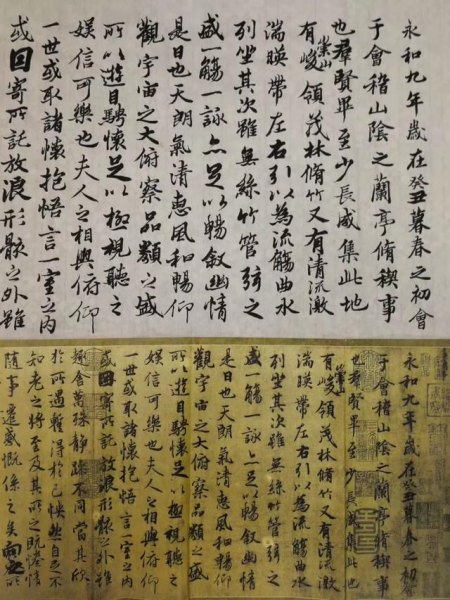 永和九年歲在癸丑暮春之初會
于會稽山陰之蘭亭脩稧事
也羣賢畢至少長咸集此地
有崇山峻領茂林脩竹又有清流激
湍暎帶左右引以為流觴曲水
列坐其次雖無絲竹管弦之
盛一觴一詠亦足以暢敘幽情
是日也天朗氣清惠風和暢仰
觀宇宙之大俯察品類之盛
所以遊目騁懷足以極視聽之
娛信可樂也夫人之相與俯仰
一世或取諸懷抱悟言一室之內
或因寄所託放浪形骸之外雖
永和九年歲在癸丑暮春之初會
于會稽山陰之蘭亭脩稧事
也羣賢畢至少長咸集此地
有崇山峻領茂林脩竹又有清流激
湍暎帶左右引以為流觴曲水
列坐其次雖無絲竹管弦之
盛一觴一詠亦足以暢敘幽情
是日也天朗氣清惠風和暢仰
觀宇宙之大俯察品類之盛
所以遊目騁懷足以極視聽之
娛信可樂也夫人之相與俯仰
一世或取諸懷抱悟言一室之內
或因寄所託放浪形骸之外雖
趣舍萬殊靜躁不同當其欣
於所遇蹔得於己怏然自足不
知老之將至及其所之既惓情
隨事遷感慨係之矣向之所